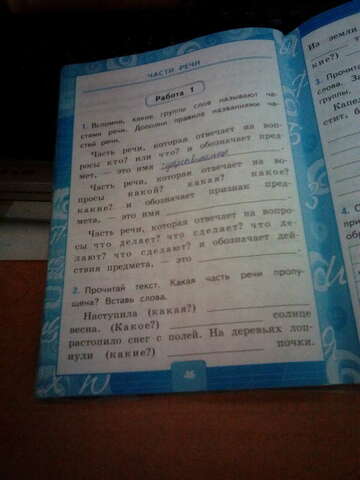 ЧАСТИ РЕЧИ
Работа 1
1. Вспомни, какие группы слов называют ча-
стями речи. Дополни правила названиями ча-
стей речи.
Часть речи, которая отвечает на воп-
росы кто? или что? и обозначает пред-
мет, — это имя существительное.
Часть речи, которая отвечает на во-
просы какой? какая? какое?
какие? и обозначает признак пред-
мета, — это имя
Часть речи, которая отвечает на вопро-
сы что делает? что сделает? что де-
лают? что сделают? и обозначает дей-
ствия предмета, — это
2. Прочитай текст. Какая часть речи пропу-
щена? Вставь слова.
Наступила (какая?)
весна. (Какое?) солнце
растопило снег с полей. На деревьях лоп-
нули (какие?) почки.
На земли
кие?)
3. Прочита
слова. За
группы.
Капе
стит, б
4.